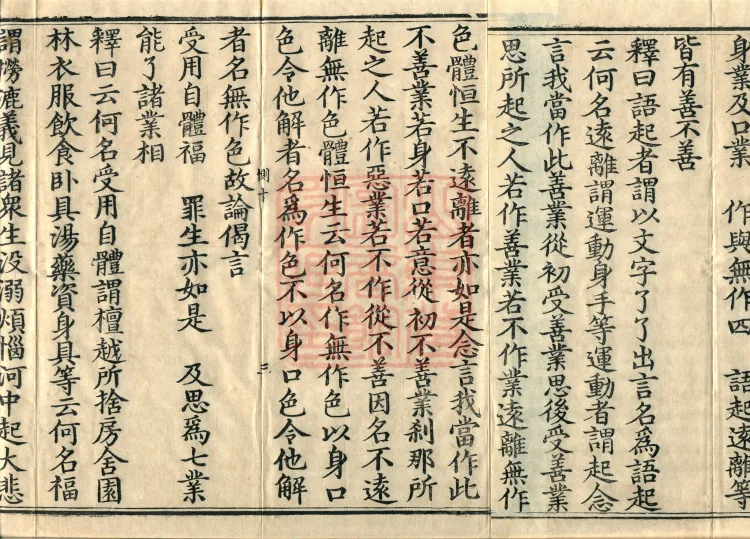 身業及口業　作與無作四　語起遠離等
皆有善不善
釋曰語起者謂以文字了了出言名爲語起
云何名遠離謂運動身手等運動者謂起念
言我當作此善業從初受善業思後受善業
思所起之人若作善業若不作業遠離無作
色體恒生不遠離者亦如是念言我當作此
不善業若身若口若意從初不善業刹那所
起之人若作惡業若不作從不善因名不遠
離無作色體恒生云何名作無作色以身口
色令他解者名爲作色不以身口色令他解
者名無作色故論偈言
惻十
三
受用自體福　罪生亦如是　及思爲七業
能了諸業相
釋曰云何名受用自體謂檀越所捨房舍園
林衣服飲食卧具湯藥資身具等云何名福
謂撈漉義見諸衆生没溺煩惱河中起大悲